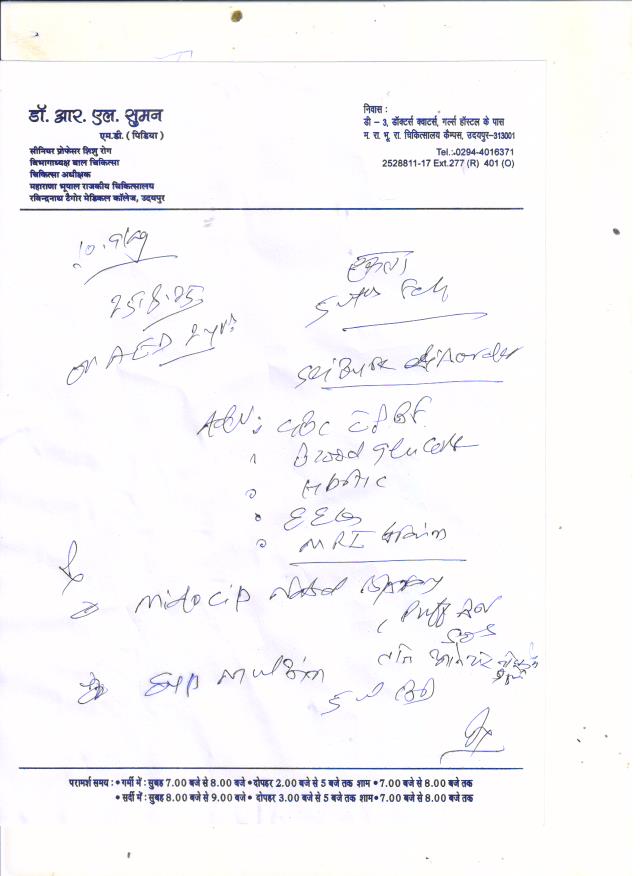 डॉ. आर. एल. सुमन
एम.डी. ( पिडिया )
सीनियर प्रोफेसर शिशु रोग
विभागाध्यक्ष बाल चिकित्सा
चिकित्सा अधीक्षक
महाराणा भूपाल राजकीय चिकित्सालय
रविन्द्रनाथ टैगोर मेडिकल कॉलेज, उदयपुर
निवास :
डी – 3, डॉक्टर्स क्वाटर्स, गर्ल्स हॉस्टल के पास
म. रा. भू. रा. चिकित्सालय कैम्पस, उदयपुर–313001
Tel.:0294-4016371
2528811-17 Ext.277 (R) 401 (O)
10.9 kg
25.8.25
on AED 2 yr.
Seizure disorder
Adv: CBC PBF
Blood glucose
EEG
MRI Brain
Midocip Nasal Spray
( Puff
Syp
5 ml
परामर्श समय : • गर्मी में : सुबह 7.00 बजे से 8.00 बजे • दोपहर 2.00 बजे से 5 बजे तक शाम • 7.00 बजे से 8.00 बजे तक
• सर्दी में : सुबह 8.00 बजे से 9.00 बजे • दोपहर 3.00 बजे से 5 बजे तक शाम • 7.00 बजे से 8.00 बजे तक